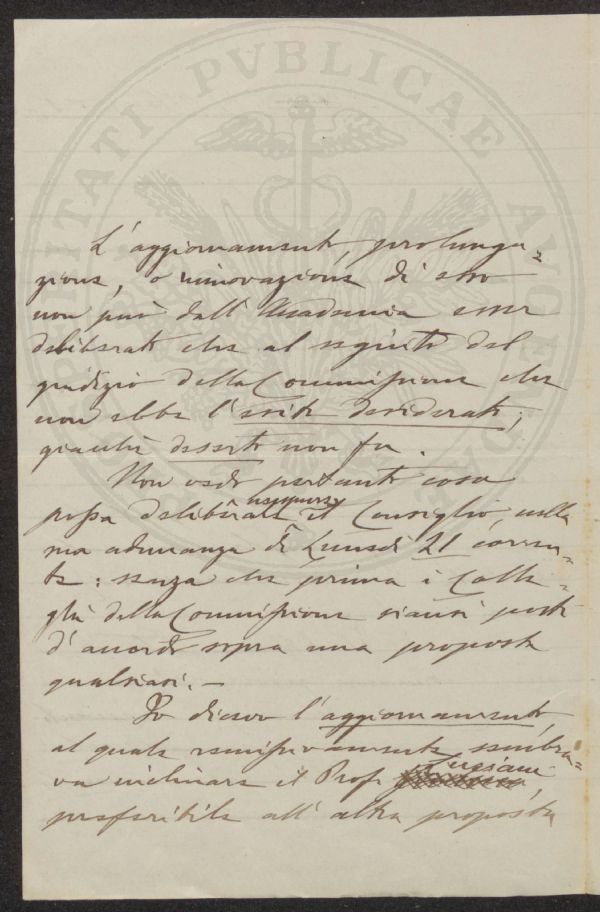 L'aggiornamento, prolunga=
zione, o rinnovazione di esso
non può dall'Accademia esser
deliberato che al seguito del
giudizio della Commissione che
non ebbe l'esito desiderato,
giacchè deserto non fu.
Non vedo pertanto cosa
possa deliberare neppure il Consiglio nella
sua adunanza di Lunedì 21 corren=
te: senza che prima i Colle=
ghi della Commissione siansi posti
d'accordo sopra una proposta
qualsiasi. —
Io dicevo l'aggiornamento,
al quale remissivamente sembra=
va inclinare il Prof. Luciani,
preferibile all'altra proposta